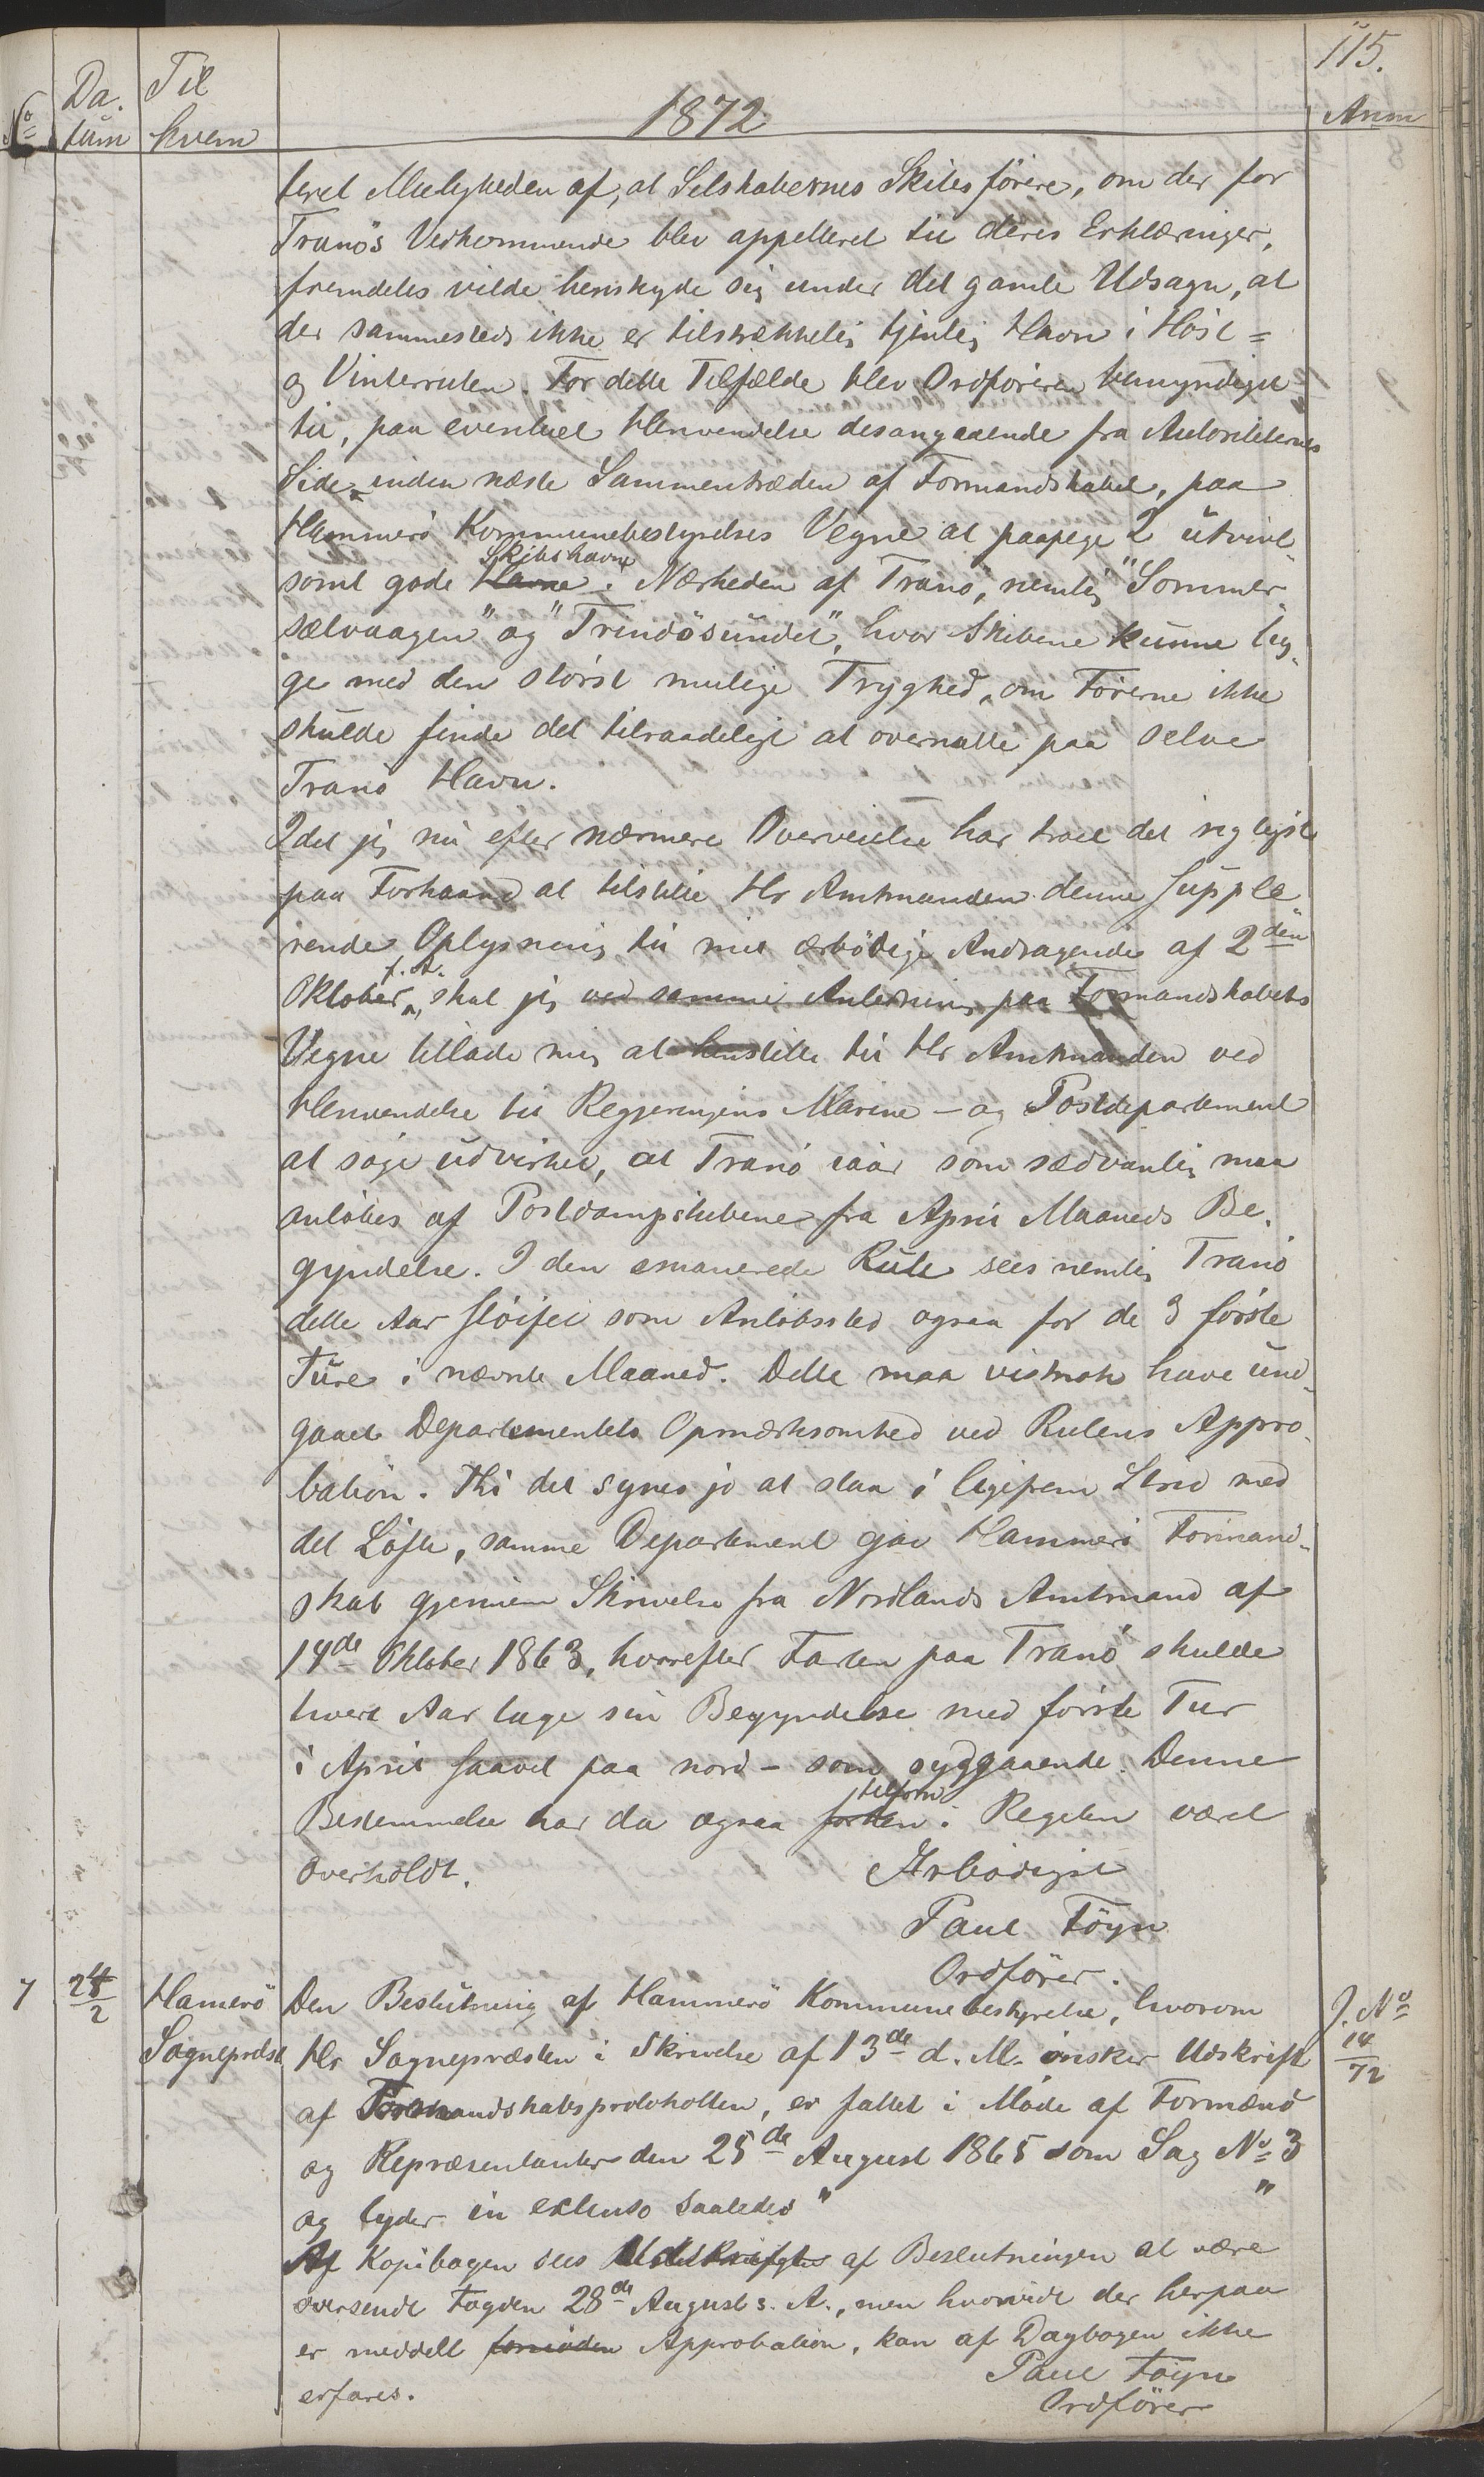 115.
No Da. Til
tum hvem
1872
Anm
teret Muligheden af, at Selskabernes Skibsförere, om der for
Tranös Vedkommende blev appelleret til deres Erklæringer,
fremdeles vilde henskyde sig under det gamle Udsagn, at
der sammesteds ikke er tilstrækkelig tjenlig Havn i Höst =
og Vinterruten. For dette Tilfælde blev Ordföreren bemyndiget
til, paa eventuel Henvendelse desangaaende fra Autoriteternes
Side inden næste Sammentræden af Formandskabet, paa
Hammerö Kommunebestyrelses Vegne at paapege 2 utvivl-
Skibshavne
somt gode Havne i Nærheden af Tranö, nemlig "Sommer
sælvaagen" og "Trindösundet", hvor Skibene kunne lig-
ge med den störst mulige Tryghed, om Förerne ikke
skulde finde det tilraadeligt at overnatte paa selve
Tranö Havn.
Idet jeg nu efter nærmere Overveielse har troet det rigtigst
paa Forhaand at tilstille Hr Amtmanden denne supple
rende Oplysning til mit ærbödige Andragende af 2den
f. A.
Oktober, skal jeg ved samme Anledning paa Formandskabets
Vegne tillade mig at henstille til Hr Amtmanden ved
Henvendelse til Regjeringens Marine - og Postdepartement
at söge udvirket, at Tranö iaar som sædvanlig maa
anlöbes af Postdampskibene fra April Maaneds Be-
gyndelse. I den emanerede Rute sees nemlig Tranö
dette Aar slöifet som Anlöbssted ogsaa for de 3 förste
Ture i nævnte Maaned. Dette maa vistnok have und-
gaaet Departementets Opmærksomhed ved Rutens Appro-
bation. Thi det synes jo at staa i ligefrem Strid med
det Löfte, samme Departement gav Hammerö Formand-
skab gjennem Skrivelse fra Nordlands Amtmand af
14de Oktober 1863, hvorefter Farten paa Tranö skulde
hvert Aar tage sin Begyndelse med förste Tur
i April saavel paa nord - som sydgaaende. Denne
tilforn
Bestemmelse har da ogsaa forhen i Regelen været
overholdt.
Ærbödigst
Paul Föyn
Ordförer.
7 24/2 Hamerö Den Beslutning af Hammerö Kommunebestyrelse, hvorom J. No
Sognepræst Hr Sognepræsten i Skrivelse af 13de d. M. önsker Udskrift 14/72
af Formandskabsprotokollen, er fattet i Möde af Formænd
og Repræsentanter den 25de August 1865 som Sag No 3
og lyder in extenso saaledes " "
Af Kopibogen sees Udskrift af Beslutningen at være
oversendt Fogden 28de August s. A., men hvorvidt der herpaa
er meddelt fornöden Approbation, kan af Dagbogen ikke
erfares.
Paul Föyn
Ordförer